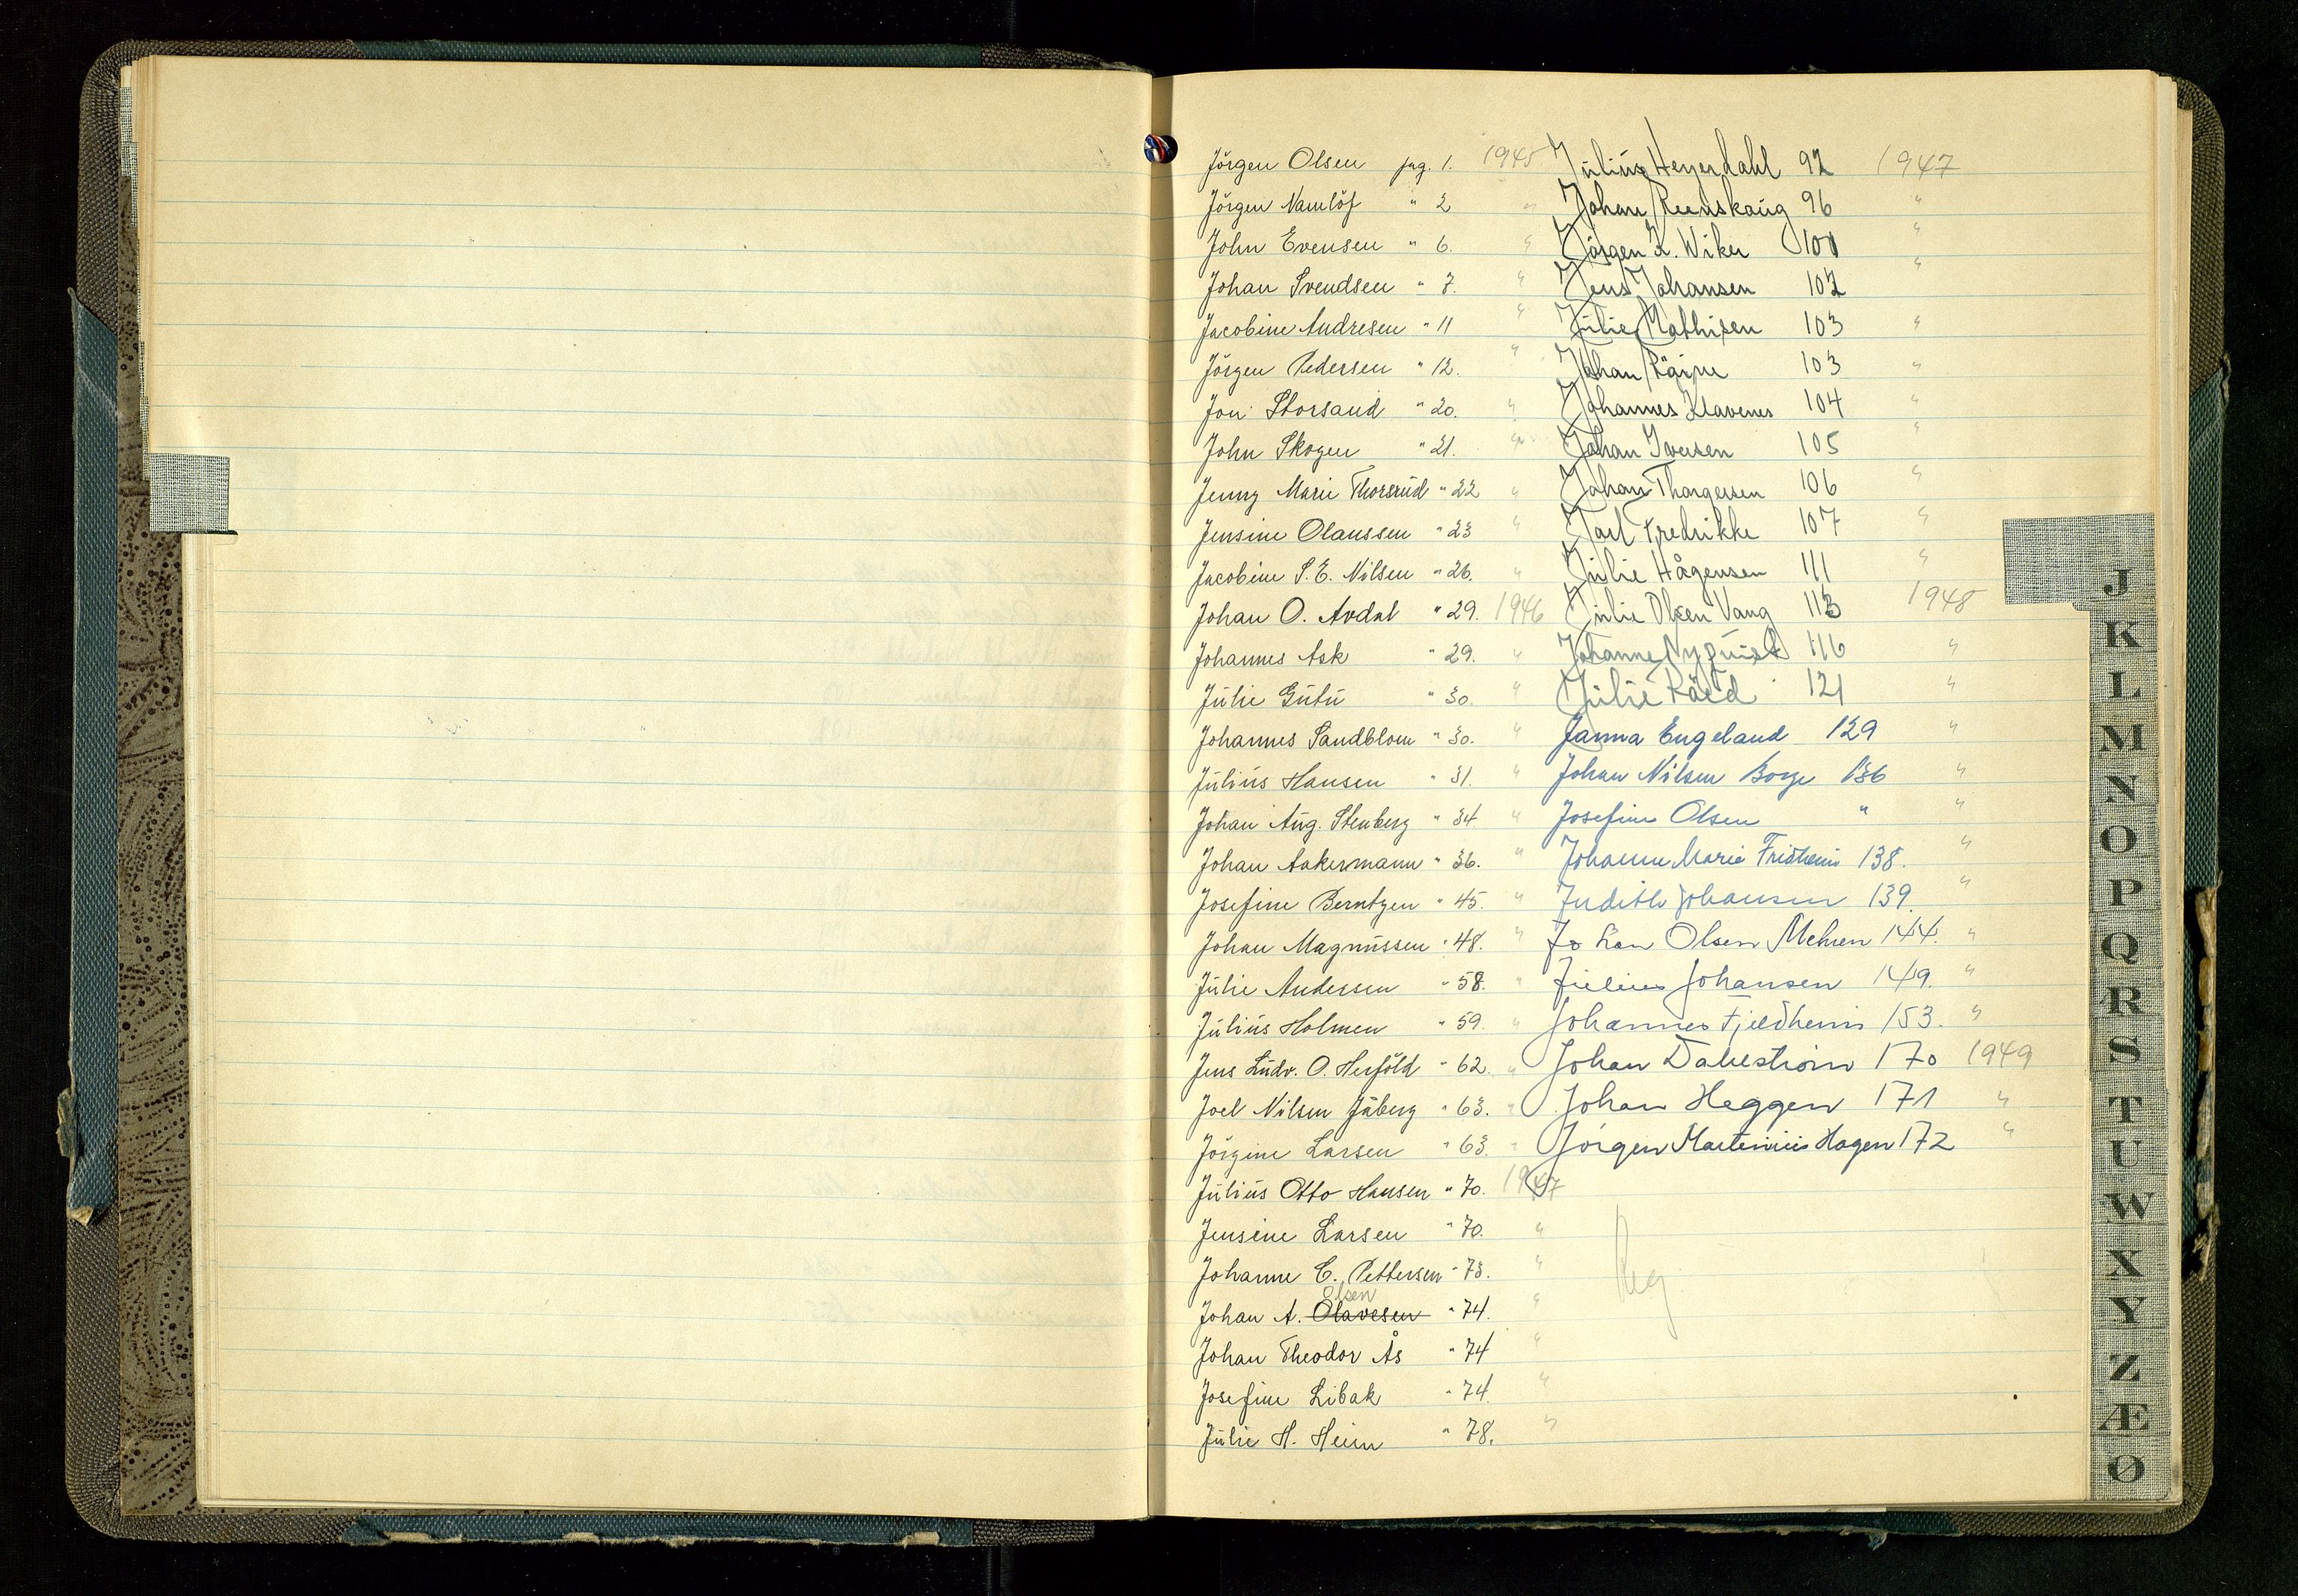 Jörgen Olsen pag. 1. 1945
Jörgen Namlöf " 2 "
John Evensen " 6. "
Johan Svendsen " 7. "
Jacobine Andresen " 11 "
Jörgen Pedersen " 12. "
Jon Storsand " 20. "
John Skogen " 21. "
Jenny Marie Thorsrud " 22 "
Jensine Olaussen " 23 "
Jacobine S. E. Nilsen " 26. "
Johan O. Avdal " 29. 1946
Johannes Ask " 29. "
Julie Gutu " 30. "
Johannes Sandblom " 30. "
Julius Hansen " 31. "
Johan Aug. Stenberg " 34. "
Johan Aakermann " 36. "
Josefine Berntzen " 45. "
Johan Magnussen " 48. "
Julie Andersen " 58. "
Julius Holmen " 59. "
Jens Ludv. O. Herföld " 62. "
Joel Nilsen Juberg " 63. "
Jörgine Larsen " 63. "
Julius Otto Hansen " 70. 1947
Jensine Larsen " 70. "
Johanne C. Pettersen " 73. "
Olsen
Johan A. Olavesen " 74. "
Johan Theodor Ås " 74 "
Josefine Libak " 74. "
Julie H. Heim " 78. "
Julius Heyerdahl 92 1947
Johan Reenskaug 96 "
Jörgen K. Wiker 101 "
Jens Johansen 102 "
Julie Mathisen 103 "
Johan 103 "
Johannes Klavenes 104 "
Johan Iversen 105 "
Johan Thorgersen 106 "
Joel Fredrikke 107 "
Julie Hågensen 111 "
Julie Olsen Vang 113 1948
Johanne Nyquist 116 "
Julie Råed 121 "
Janna Engeland 129 "
Johan Nilsen Borge 136 "
Josefine Olsen " "
Johanne Marie Fridheim 138. "
Judith Johansen 139. "
Johan Olsen Mehren 144. "
Julius Johansen 149. "
Johannes Fjeldheim 153. "
Johan Dahlström 170 1949
Johan Heggen 171 "
Jörgen Martinius Hagen 172 "
Reg
J
K
L
M
N
O
P
Q
R
S
T
U
W
X
Y
Z
Æ
Ø